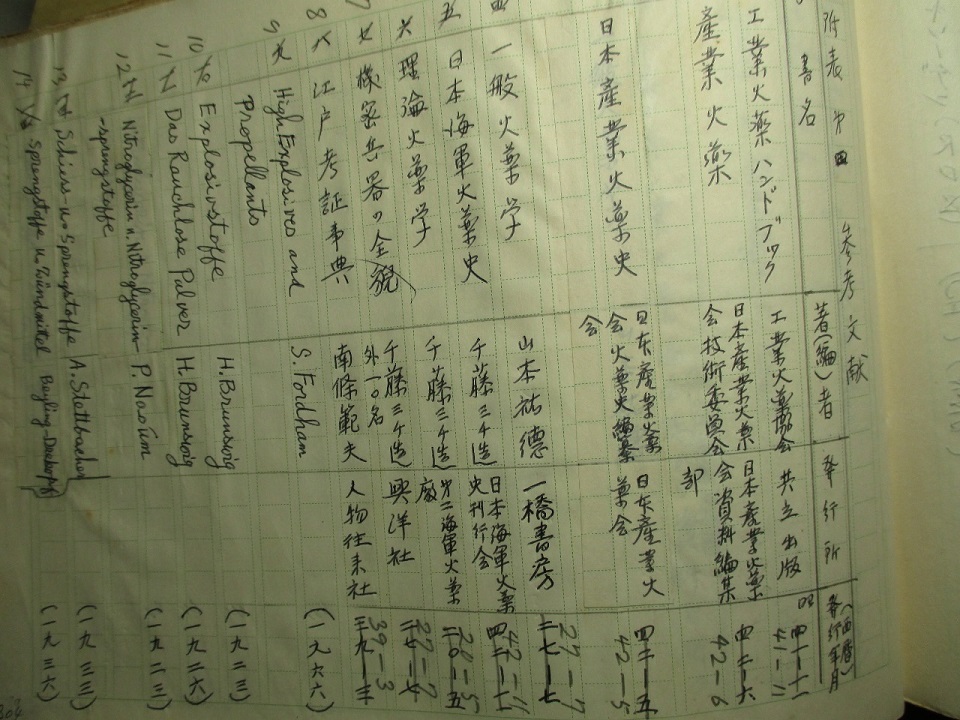 附表 第四 参考文献
書名 著(編)者 発行所 発行年月 (西暦)
工業火薬ハンドブック 工業火薬協会 共立出版 昭 四一—一一 41—11
産業火薬 日本産業火薬会技術委員会 日本産業火薬会資料編集部 四二—六 42—6
日本産業火薬史 日本産業火薬会火薬史編纂会 日本産業火薬会 四二—五 42—5
四 一般火薬学 山本祐徳 一橋書房 二七—七 27—7
五 日本海軍火薬史 千藤三千造 日本海軍火薬史刊行会 42—11
六 理論火薬学 千藤三千造 第二海軍火薬廠 二〇—五 20—5
7 機密兵器の全貌 千藤三千造 外一〇名 興洋社 二七—七 27—7
8 江戸考証事典 南條範夫 人物往来社 三九—三 39—3
9 High Explosives and
Propellants S. Fordhan (一九六六)
10 Explosivstoffe H. Brunswig (一九二三)
11 Das Rauchlose Pulver H. Brunswig (一九二六)
12 Nitroglycerin u. Nitroglycerin-
-sprengstoffe P. Naoúm (一九二三)
13 Schiess- u. Sprengstoffe A. Stettbacher (一九三三)
14 Sprengstoffe u. Zündmittel (一九三六)